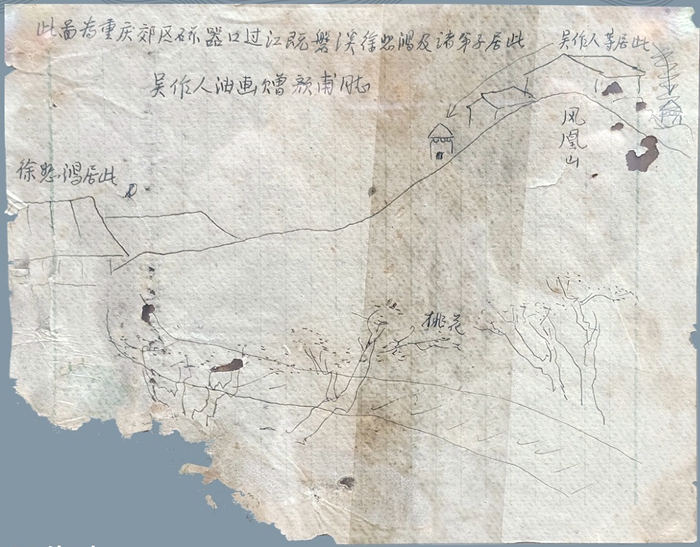 此图为重庆郊区磁器口过江既磐溪徐悲鸿及诸弟子居此
吴作人等居此
吴作人油画赠颜甫
凤凰山
徐悲鸿居此
桃花